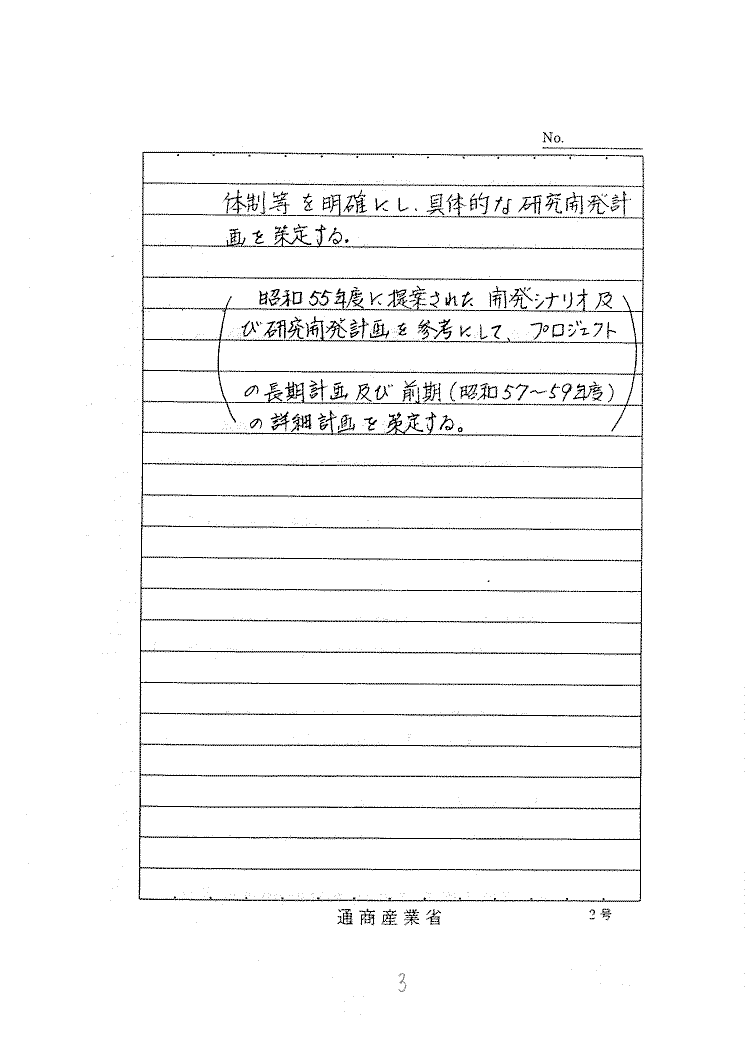 No.
体制等を明確にし、具体的な研究開発計
画を策定する。
昭和55年度に提案された開発シナリオ及
び研究開発計画を参考にして、プロジェクト
の長期計画及び前期(昭和57〜59年度)
の詳細計画を策定する。
通商産業省 2号
3